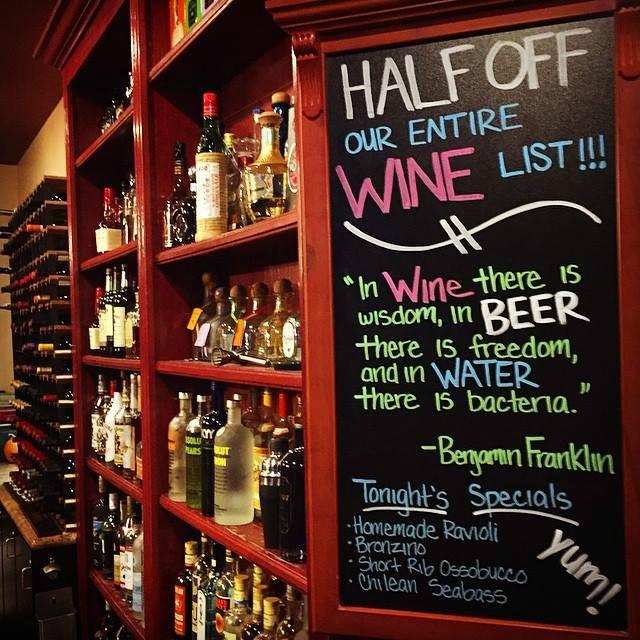 HALF OFF
OUR ENTIRE
WINE LIST!!!
"In Wine there is
wisdom, in BEER
there is freedom,
and in WATER
there is bacteria."
-Benjamin Franklin
Tonight's Specials
·Homemade Ravioli
·Bronzino
·Short Rib Ossobucco
·Chilean Seabass
Yum!